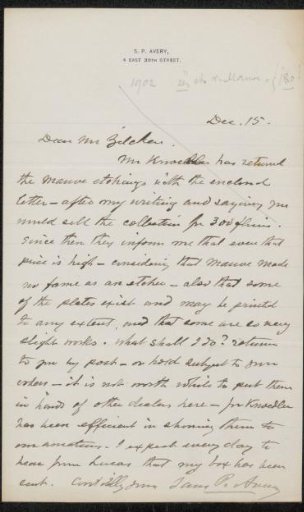 S. P. AVERY,
4 EAST 38TH STREET.
1902
Dec. 15.
Dear Mr Zilcken.
Mr Knoedler has returned
the Mauve etchings with the enclosed
letter - after my writing and saying you
would sell the collection for 300 florins.
Since then they inform me that even that
price is high - considering that Mauve made
no fame as an etcher - also that some
of the plates exist and may be printed
to any extent, and that some are so very
slight works. What shall I do? return
to you by post - or hold subject to your
orders - it is not worth while to put them
in hands of other dealers here - for Knoedler
has been efficient in showing them to
our amateurs. I expect every day to
hear from Lucas that my box has been
sent. Cordially yours Saml P. Avery